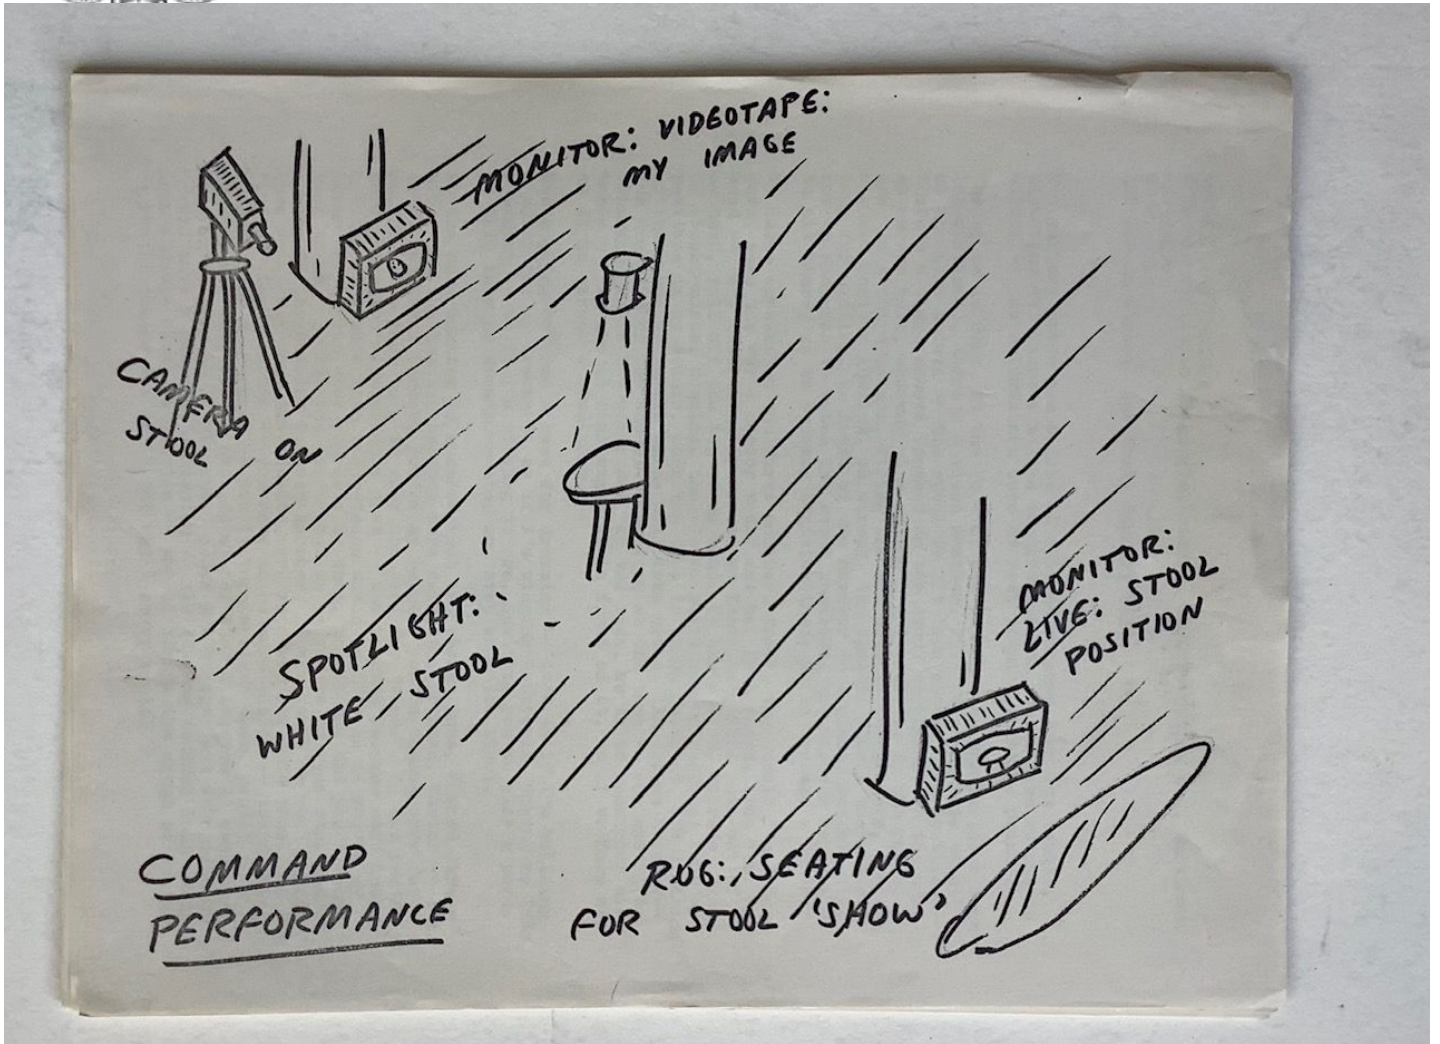 MONITOR: VIDEOTAPE:
MY IMAGE
CAMERA ON
STOOL
SPOTLIGHT:
WHITE STOOL
MONITOR:
LIVE: STOOL
POSITION
COMMAND
PERFORMANCE
RUG: SEATING
FOR STOOL 'SHOW'